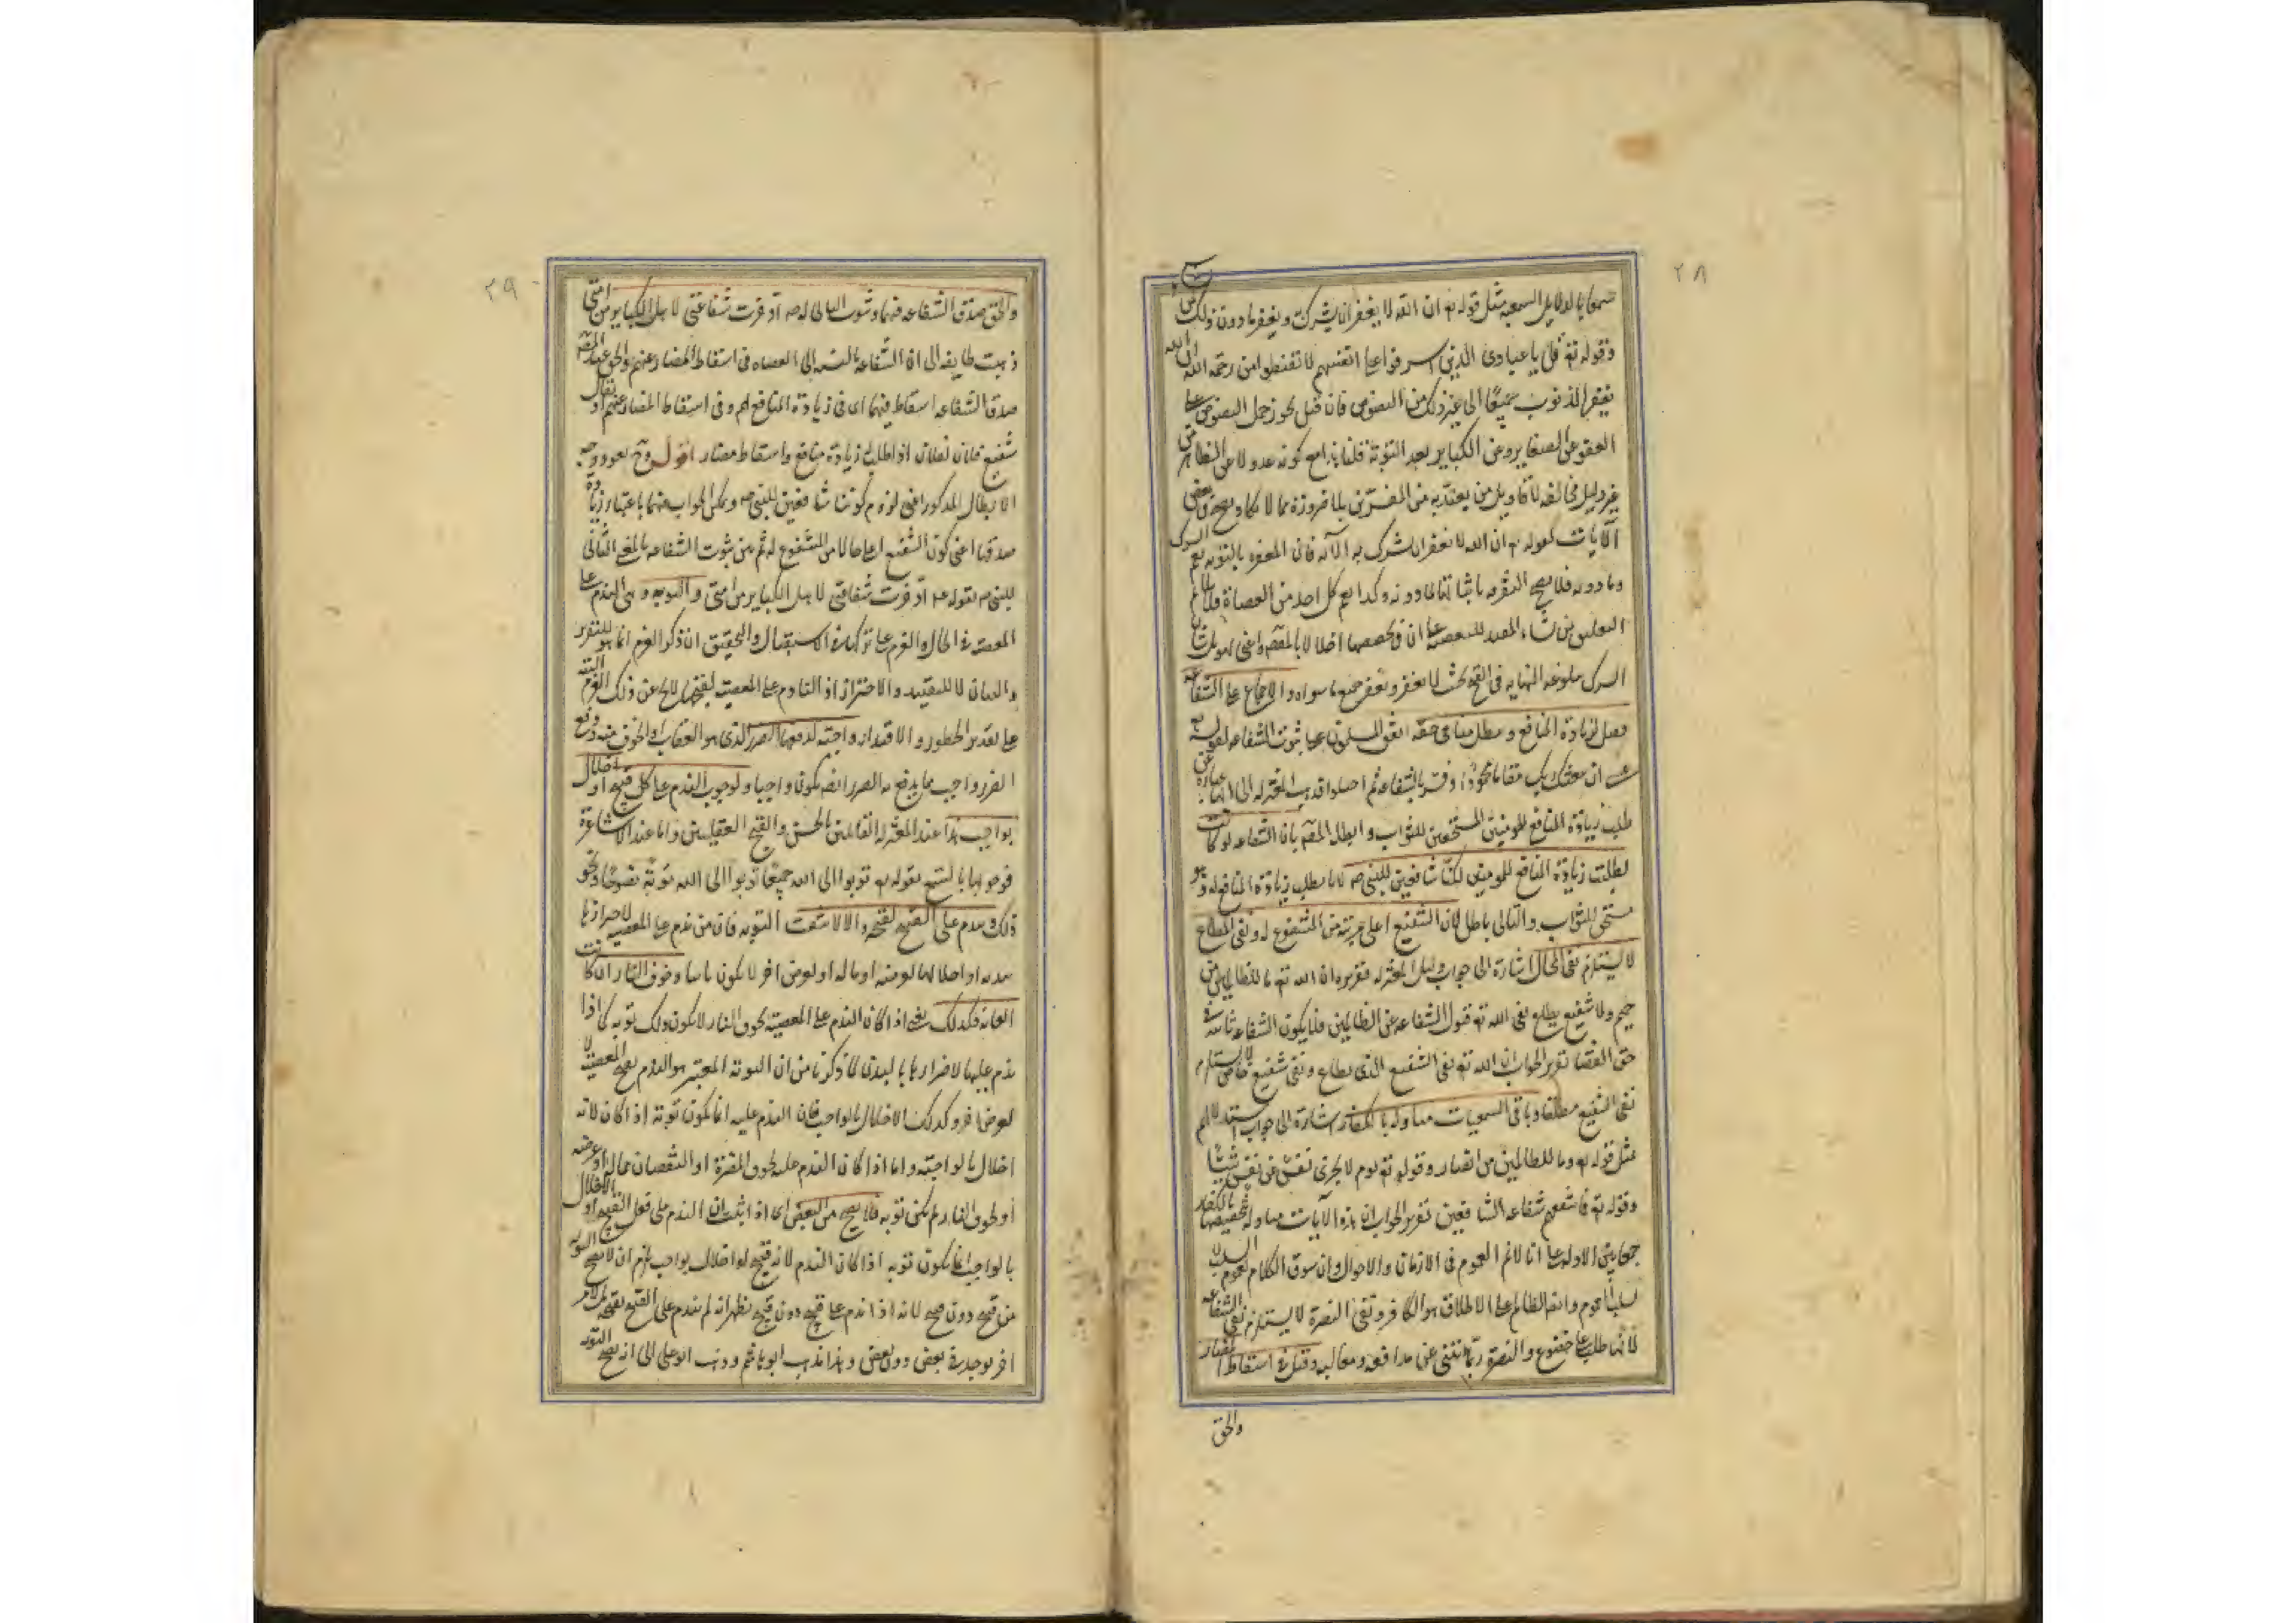 ٢٨
سمعا بالدلايل السمعيه مثل قوله تع ان الله لا يغفر ان يشرك به ويغفر ما دون ذلك لمن
وقوله تع قل يا عبادى الذين اسرفوا على انفسهم لا تقنطوا من رحمة الله ان الله
يغفر الذنوب جميعا الى غير ذلك من النصوص فان قيل يجوز حمل النصوص على
العفو عن الصغاير وعن الكباير بعد التوبة قلنا هذا مع كونه عدولا عن الظاهر من
غير دليل مخالفه لاقاويل من يعتد به من المفسرين بلا ضرورة مما لا يكاد يصح فى بعض
الآيات كقوله تع ان الله لا يغفر ان يشرك به الآيه فان المغفره بالتوبه يعم الشرك
وما دونه فلا يصح التفرقه باثباتها لما دونه وكذا يعم كل احد من العصاة فلا يلايم
التعليق بمن يشاء المفيد للبعضيه على ان فى تخصيصها اخلالا بالمقصود اعنى تهويل شان
الشرك ببلوغه النهايه فى القبح بحيث لا يغفر ويغفر جميع ما سواه والاجماع على الشفاعه
فقيل لزيادة المنافع ويبطل منا فى حقه اتفق المسلمون على ثبوت الشفاعه لقوله تع
عسى ان يبعثك ربك مقاما محمودا وفسر بالشفاعه ثم اختلفوا فذهب المعتزله الى انها عبارة عن
طلب زيادة المنافع للمومنين المستحقين للثواب وابطله المصنف بان الشفاعه لو كانت
لطلب زيادة المنافع للمومنين لكنا شافعين للنبى ص لانا نطلب زيادة المنافع له وهو
مستحق للثواب والتالى باطل لان الشفيع اعلى مرتبة من المشفوع له ونفى المطاع
لا يستلزم نفى المجاب اشارة الى جواب دليل المعتزله تقريره ان الله تع قال ما للظالمين من
حميم ولا شفيع يطاع نفى الله تع قبول الشفاعه عن الظالمين فلا يكون الشفاعه ثابته فى
حق العصاة تقرير الجواب ان الله تع نفى الشفيع الذى يطاع ونفى شفيع خاص لا يستلزم
نفى الشفيع مطلقا وباقى السمعيات متاوله بالكفار اشارة الى جواب استدلالهم
بمثل قوله تع وما للظالمين من انصار وقوله تع يوم لا تجزى نفس عن نفس شيئا
وقوله تع فما تنفعهم شفاعه الشافعين تقرير الجواب ان هذه الآيات متاوله بتخصيصها بالكفار
جمعا بين الادله على انا لا نم العموم فى الازمان والاحوال وان سوق الكلام لعموم السلب لا
لسلب العموم وايضا الظالم على الاطلاق هو الكافر ونفى النصرة لا يستلزم نفى الشفاعه
لانها طلب على خضوع والنصرة ربما تنبئ عن مدافعه ومغالبه وقيل فى اسقاط المضار
والحق
٢٩
والحق صدق الشفاعه فيهما وثبوت الثانى له ص ادخرت شفاعتى لاهل الكباير من امتى
ذهبت طايفه الى ان الشفاعه بالنسبه الى العصاه فى اسقاط المضار عنهم والحق عند المصنف
صدق الشفاعه اسقاط فيهما اى فى زيادة المنافع لهم وفى اسقاط المضار عنهم اذ يقال
شفع فلان لفلان اذا طلب له زيادة منافع واسقاط مضار اقول وح يعود وجه
الابطال المذكور اعنى لزوم كوننا شافعين للنبى ص ويمكن الجواب عنهما باعتبار زيادة
صدقها اعنى كون الشفيع اعلى حالا من المشفوع له ثم بين ثبوت الشفاعه بالمعنى الثانى
للنبى ص بقوله عم ادخرت شفاعتى لاهل الكباير من امتى والتوبه وهى الندم على
المعصيه فى الحال والعزم على تركها فى الاستقبال والتحقيق ان ذكر العزم انما هو للتقرير
والبيان لا للتقييد والاحتراز اذ النادم على المعصيه لقبحها لا يخلو عن ذلك العزم البته
على تقدير الخطور والاقتدار واجبة لدفعها الضرر الذى هو العقاب او الخوف منه ودفع
الضرر واجب فما يدفع به الضرر ايضا يكون واجبا ولوجوب الندم على كل قبيح او اخلال
بواجب هذا عند المعتزله القائلين بالحسن والقبح العقليين واما عند الاشاعرة
فوجوبها بالسمع بقوله تع توبوا الى الله جميعا توبوا الى الله توبة نصوحا ونحو
ذلك ويندم على القبيح لقبحه والا لانتفت التوبه فان من ندم على المعصيه لاضرارها
ببدنه او اخلالها بعرضه او ماله او لغرض آخر لا يكون تائبا وخوف النار ان كانت
الغايه فكذلك يعنى اذا كان الندم على المعصيه لخوف النار لا يكون ذلك توبه كما اذا
ندم عليها لاضرارها بالبدن لما ذكرنا من ان التوبه المعتبره هو الندم لقبح المعصيه لا
لغرض آخر وكذلك الاخلال بالواجب فان الندم عليه انما يكون توبة اذا كان لانه
اخلال بالواجبة واما اذا كان الندم عليه لخوف المضرة او النقصان بماله او عرضه
او لخوف النار لم يكن توبه فلا يصح من البعض اى اذا ثبت ان الندم على فعل القبيح او الاخلال
بالواجب انما يكون توبه اذا كان الندم لانه قبيح او اخلال بواجب يلزم ان لا يصح التوبه
من قبيح دون قبيح لانه اذا ندم على قبيح دون قبيح يظهر انه لم يندم على القبيح لقبحه بل لامر
آخر يوجد فى بعض دون بعض وهذا مذهب ابو هاشم وذهب ابو على الى انه يصح التوبه